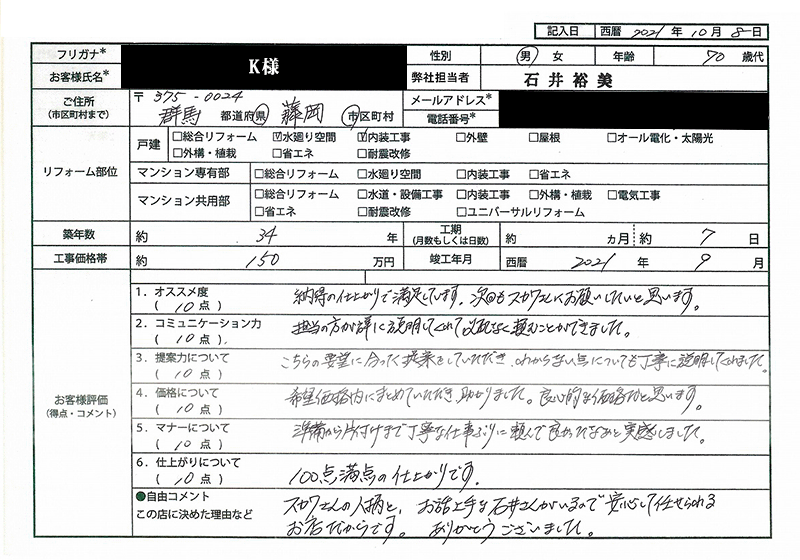 記入日 西暦 2021 年 10 月 8 日
フリガナ* K様 性別 男 女 年齢 70 歳代
お客様氏名* 弊社担当者 石井裕美
ご住所 (市区町村まで) 〒375-0024 メールアドレス*
群馬 都道府県 藤岡 市区町村 電話番号*
リフォーム部位
戸建 □総合リフォーム ☑水廻り空間 ☑内装工事 □外壁 □屋根 □オール電化・太陽光
□外構・植栽 □省エネ □耐震改修
マンション専有部 □総合リフォーム □水廻り空間 □内装工事 □省エネ
マンション共用部 □総合リフォーム □水道・設備工事 □内装工事 □外構・植栽 □電気工事
□省エネ □耐震改修 □ユニバーサルリフォーム
築年数 約 34 年 工期 (月数もしくは日数) 約 カ月 約 7 日
工事価格帯 約 150 万円 竣工年月 西暦 2021 年 9 月
お客様評価 (得点・コメント)
1. オススメ度 (10点) 納得の仕上がりで満足しています。次回もスガワさんにお願いしたいと思います。
2. コミュニケーション力 (10点) 担当の方が詳に説明してくれて 頼むことができました。
3. 提案力について (10点) こちらの要望に合った提案をしていただき、わからない点についても丁寧に説明してくれました。
4. 価格について (10点) 希望価格内にまとめていただき、助かりました。良心的な価格だと思います。
5. マナーについて (10点) 準備から片付けまで丁寧な仕事ぶりに頼んで良かったなあと実感しました。
6. 仕上がりについて (10点) 100点満点の仕上がりです。
●自由コメント この店に決めた理由など スガワさんの人柄と、お話上手な石井さんがいるので安心して任せられる
お店だからです。 ありがとうございました。